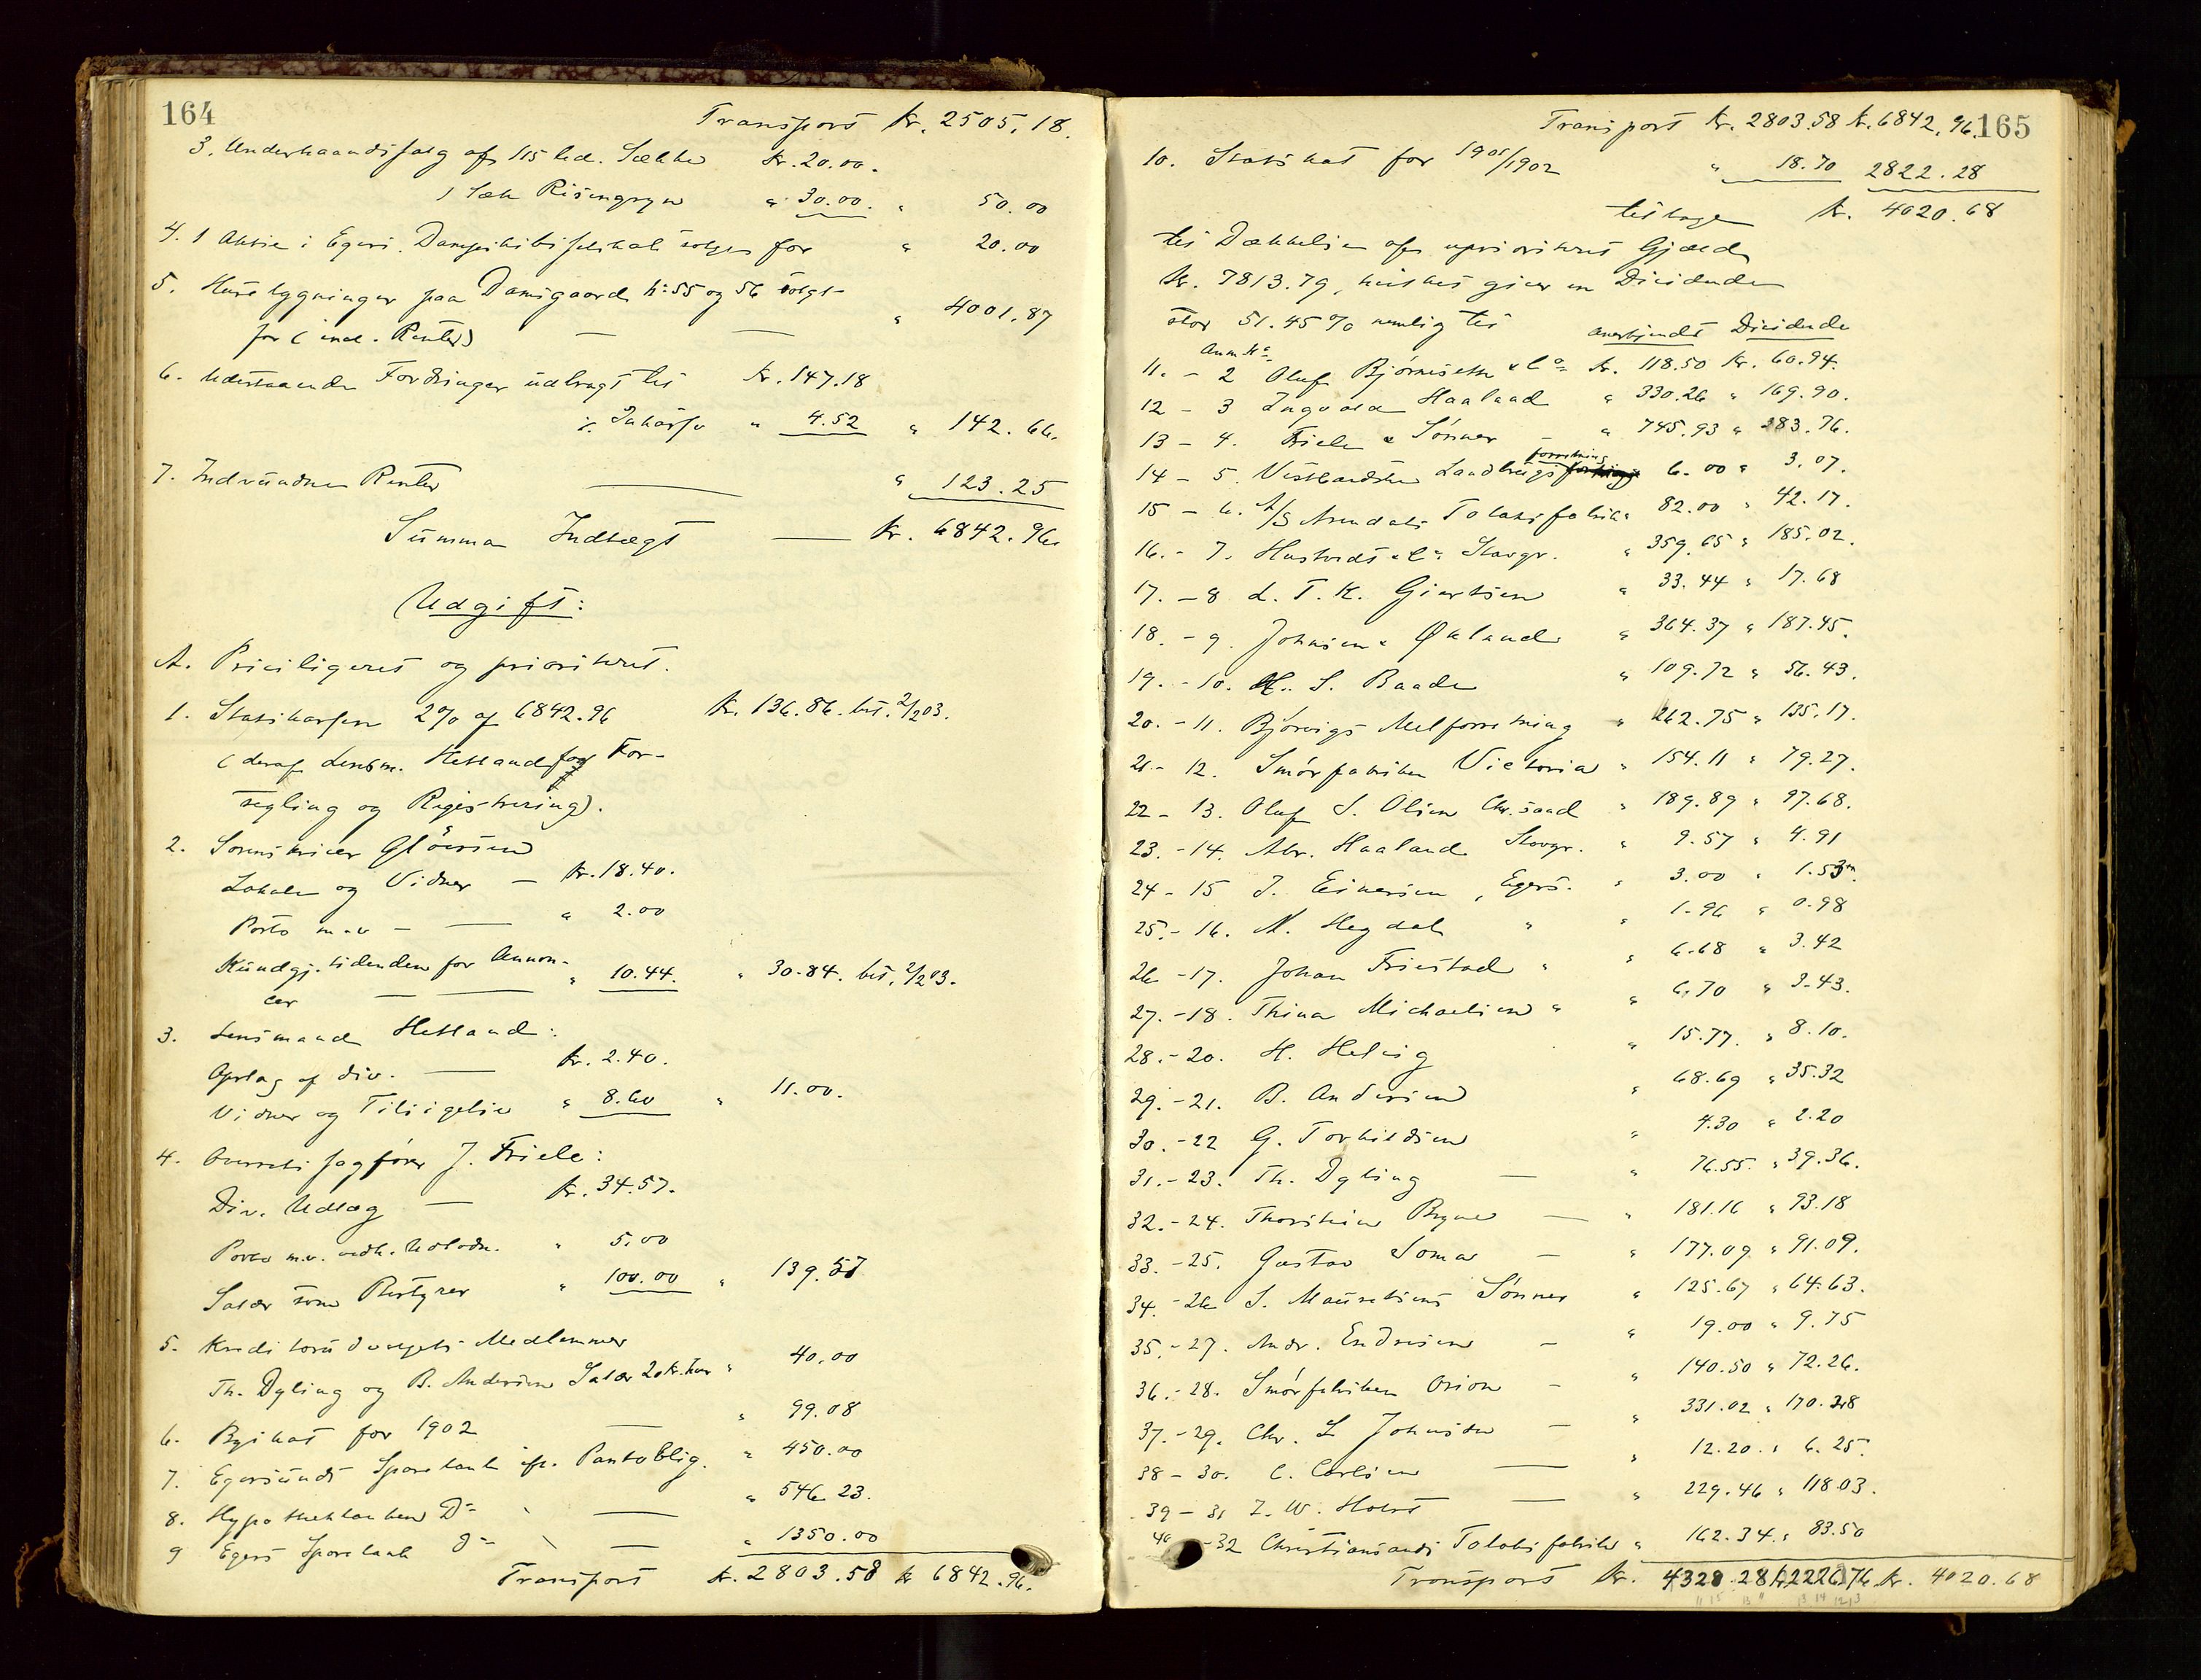 164
Transport Kr. 2505.18.
3. Underhaandssalg af 115 led. Sække Kr. 20.00.
1 Sæk Risengryn " 30.00. " 50.00
4. 1 Aktie i Egers. Dampskibsselskab solgt for " 20.00
5. Husebygninger paa Damsgaard No 55 og 56 solgt
for (incl. Renter) — — " 4001.87
6. Udestaaende Fordringer indbragt til Kr. 147.18
÷ Inkasso " 4.52 " 142.66.
7. Indvundne Renter — " 123.25
Summa Indtægt — Kr. 6842.96.
Udgift:
A. Priviligeret og prioriteret.
1. Statskassen 2% af 6842.96 Kr. 136.86. bet. 2/2 03.
(deraf Lensm. Hetland for For-
segling og Registrering).
2. Sorenskriver Gløersen
Lokale og Vidner — Kr. 18.40.
Porto m.v — — " 2.00
Kundgj.tidenden for Annon-
cer — — " 10.44. " 30.84. bet. 2/2 03.
3. Lensmand Hetland:
Opslag af div. — Kr. 2.40.
Vidner og Tilsigelse " 8.60 " 11.00.
4. Overretssagfører J. Friele:
Div. Udlæg — Kr. 34.57.
Porto m.v. vedk. Udlodn. " 5.00
Salær som Bestyrer " 100.00 " 139.57
5. Kreditorudvalgets Medlemmer
Th. Dyling og B. Andersen Salær 20 Kr. hver " 40.00
6. Byskat for 1902 — " 99.08
7. Egersunds Sparebank ifl. Pantoblig. " 450.00
8. Hypothekbanken Do " — " 546.23.
9 Egers Sparebank do " — " 1350.00
Transport Kr. 2803.58 Kr 6842.96.
165
Transport Kr. 2803.58 Kr. 6842.96.
10. Statsskat for 1901/1902 " 18.70 2822.28
tilbage Kr. 4020.68
til Dækkelse af uprioriteret Gjæld
Kr. 7813.79, hvilket giver en Dividende
stor 51.45% nemlig til anerkjendt Dividende
Anm. No
11. - 2 Oluf Bjørnseth & Co Kr. 118.50 Kr. 60.94.
12 - 3 Ingvald Haaland " 330.26 " 169.90.
13 - 4. Friele & Sønner — " 745.93 " 383.76.
14 - 5. Vestlandske Landbrugsforretning 6.00 " 3.07.
15 - 6. A/S Arendals Tobaksfabrik " 82.00 " 42.17.
16. - 7. Husvedt & Co Stavgr. " 359.65 " 185.02.
17. - 8 L. T. K. Giertsen " 33.44 " 17.68
18. - 9. Johnsen & Øxland " 364.37 " 187.45.
19. - 10. H. S. Baade " 109.72 " 56.43.
20. - 11. Bjørvigs Melforretning " 262.75 " 135.17.
21. - 12. Smørfabriken Victoria " 154.11 " 79.27.
22 - 13. Oluf S. Olsen Chr.sand " 189.89 " 97.68.
23. - 14. Abr. Haaland Stavgr. " 9.57 " 4.91
24 - 15 J. Einersen, Egers. " 3.00 " 1.53.
25. - 16. M. Hegdal " " 1.96 " 0.98
26 - 17. Johan Friestad " " 6.68 " 3.42
27. - 18. Thina Michaelsen " " 6.70 " 3.43.
28. - 20. H. Helvig " 15.77. " 8.10.
29. - 21. B. Andersen " 68.69 " 35.32
30. - 22 G. Torkildsen " 4.30 " 2.20
31. - 23. Th. Dyling — " 76.55. " 39.36.
32. - 24. Thorstein Bryne — " 181.16 " 93.18
33. - 25. Gustav Soma — " 177.09 " 91.09.
34. - 26 S. Mauritsens Sønner " 125.67 " 64.63.
35. - 27. Andr. Endresen — " 19.00 " 9.75
36. - 28. Smørfabriken Orion — " 140.50 " 72.26.
37. - 29. Chr. L Johnsen — " 331.02 " 170.28
38 - 30. C. Carlsen — " 12.20. " 6.25.
39 - 31 I. W. Holst — " 229.46 " 118.03.
40 - 32 Christiansands Tobaksfabrik " 162.34. " 83.50
Transport Kr. 4328.28 Kr. 2226.76 Kr. 4020.68